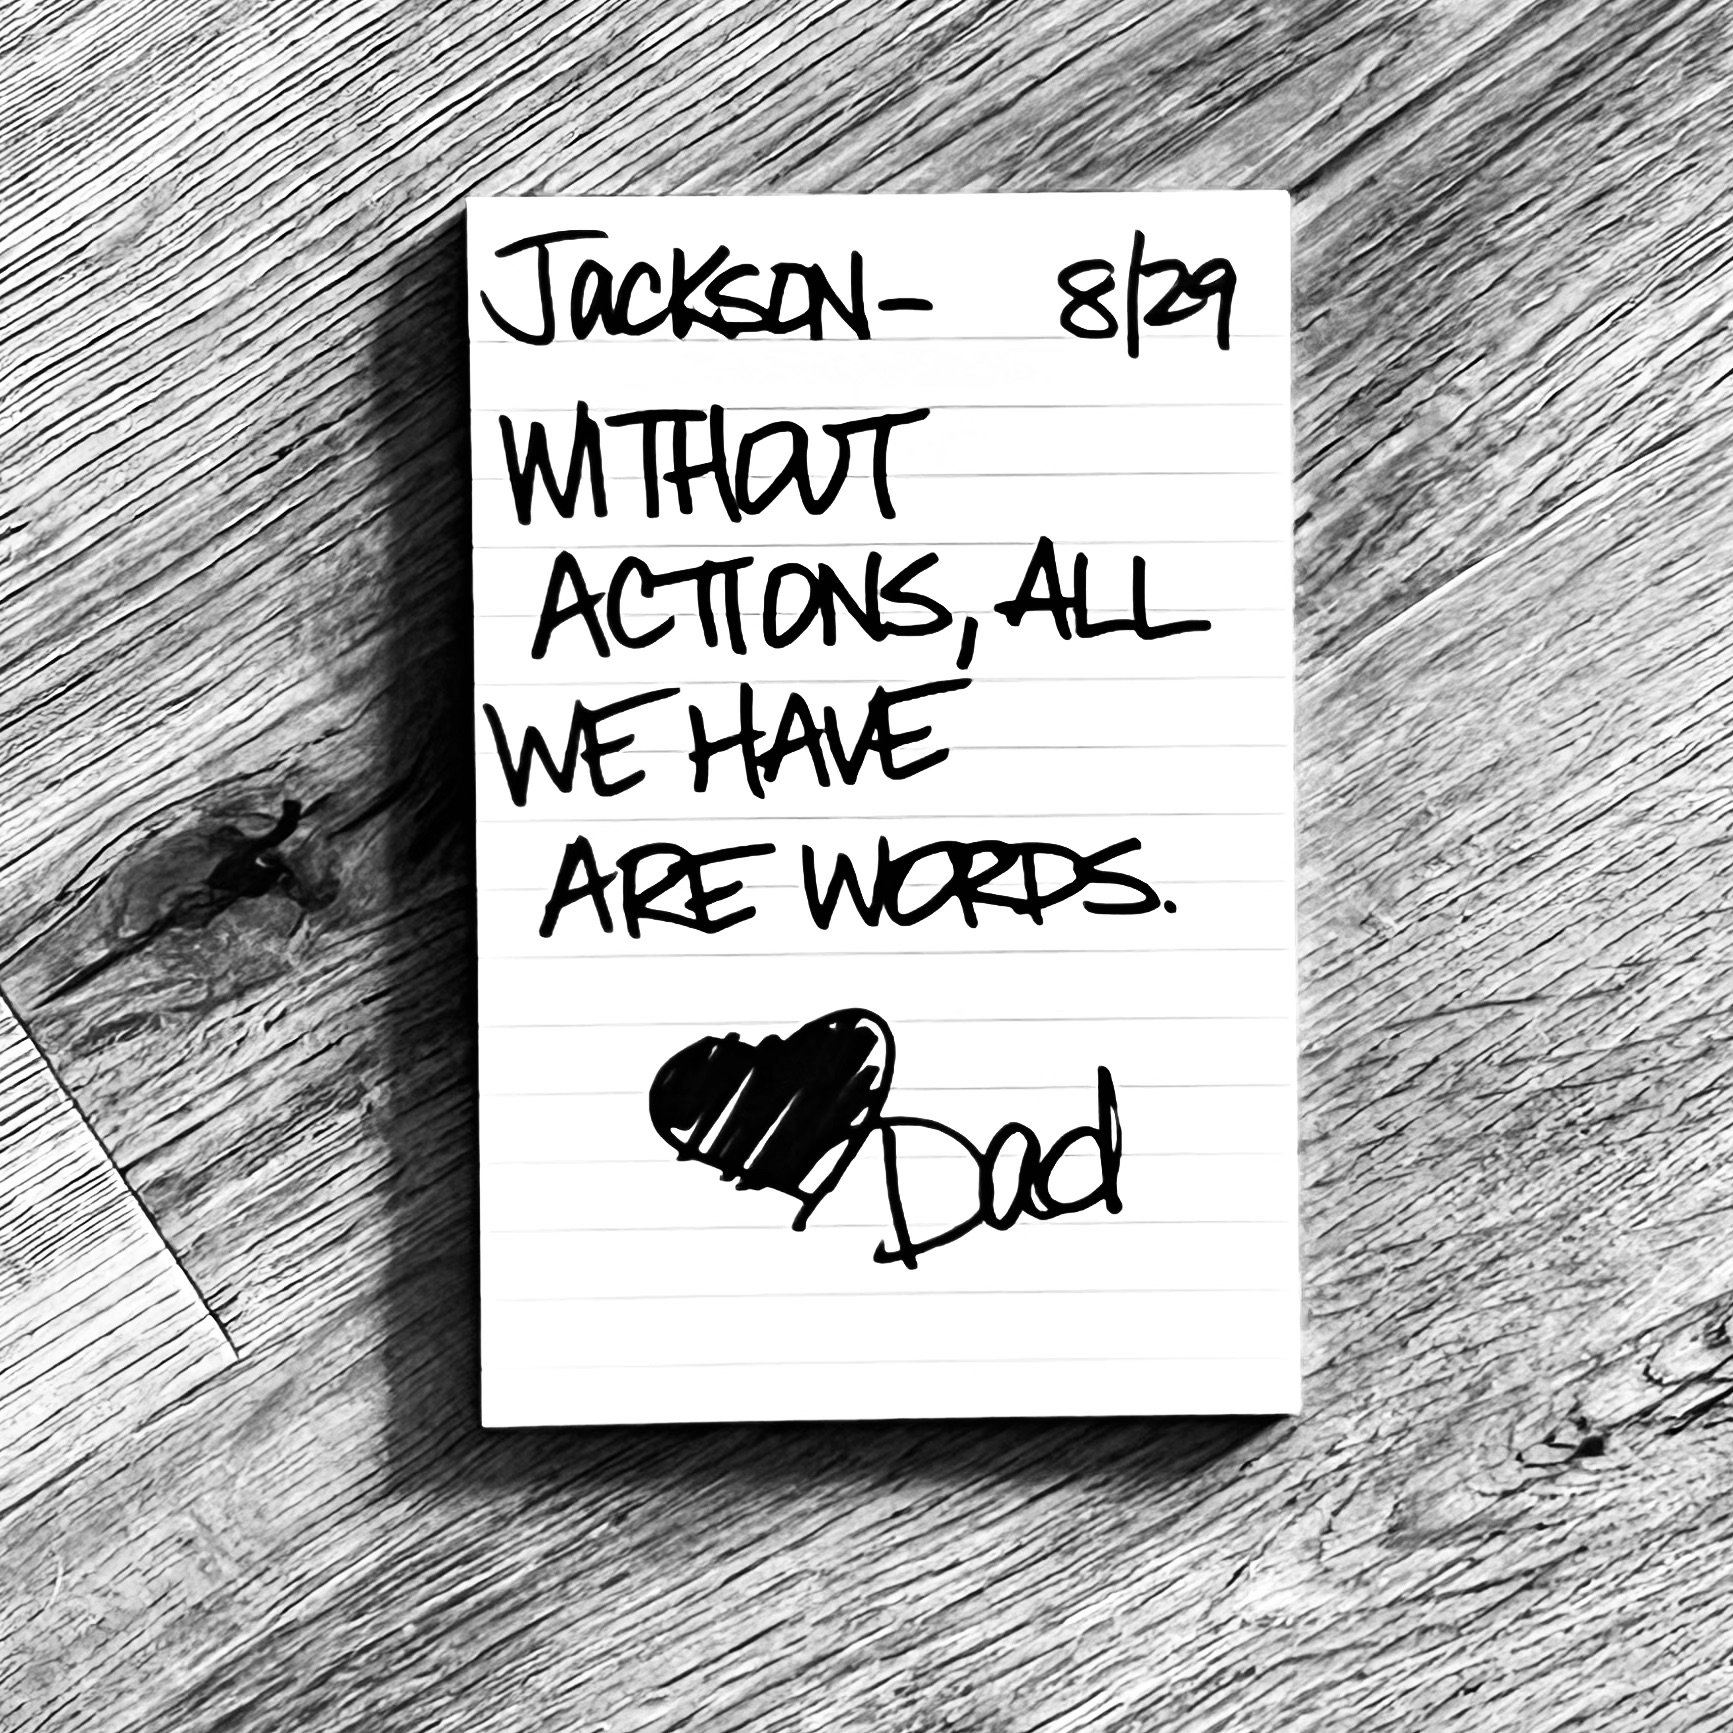 Jackson- 8/29
WITHOUT
ACTIONS, ALL
WE HAVE
ARE WORDS.
Dad